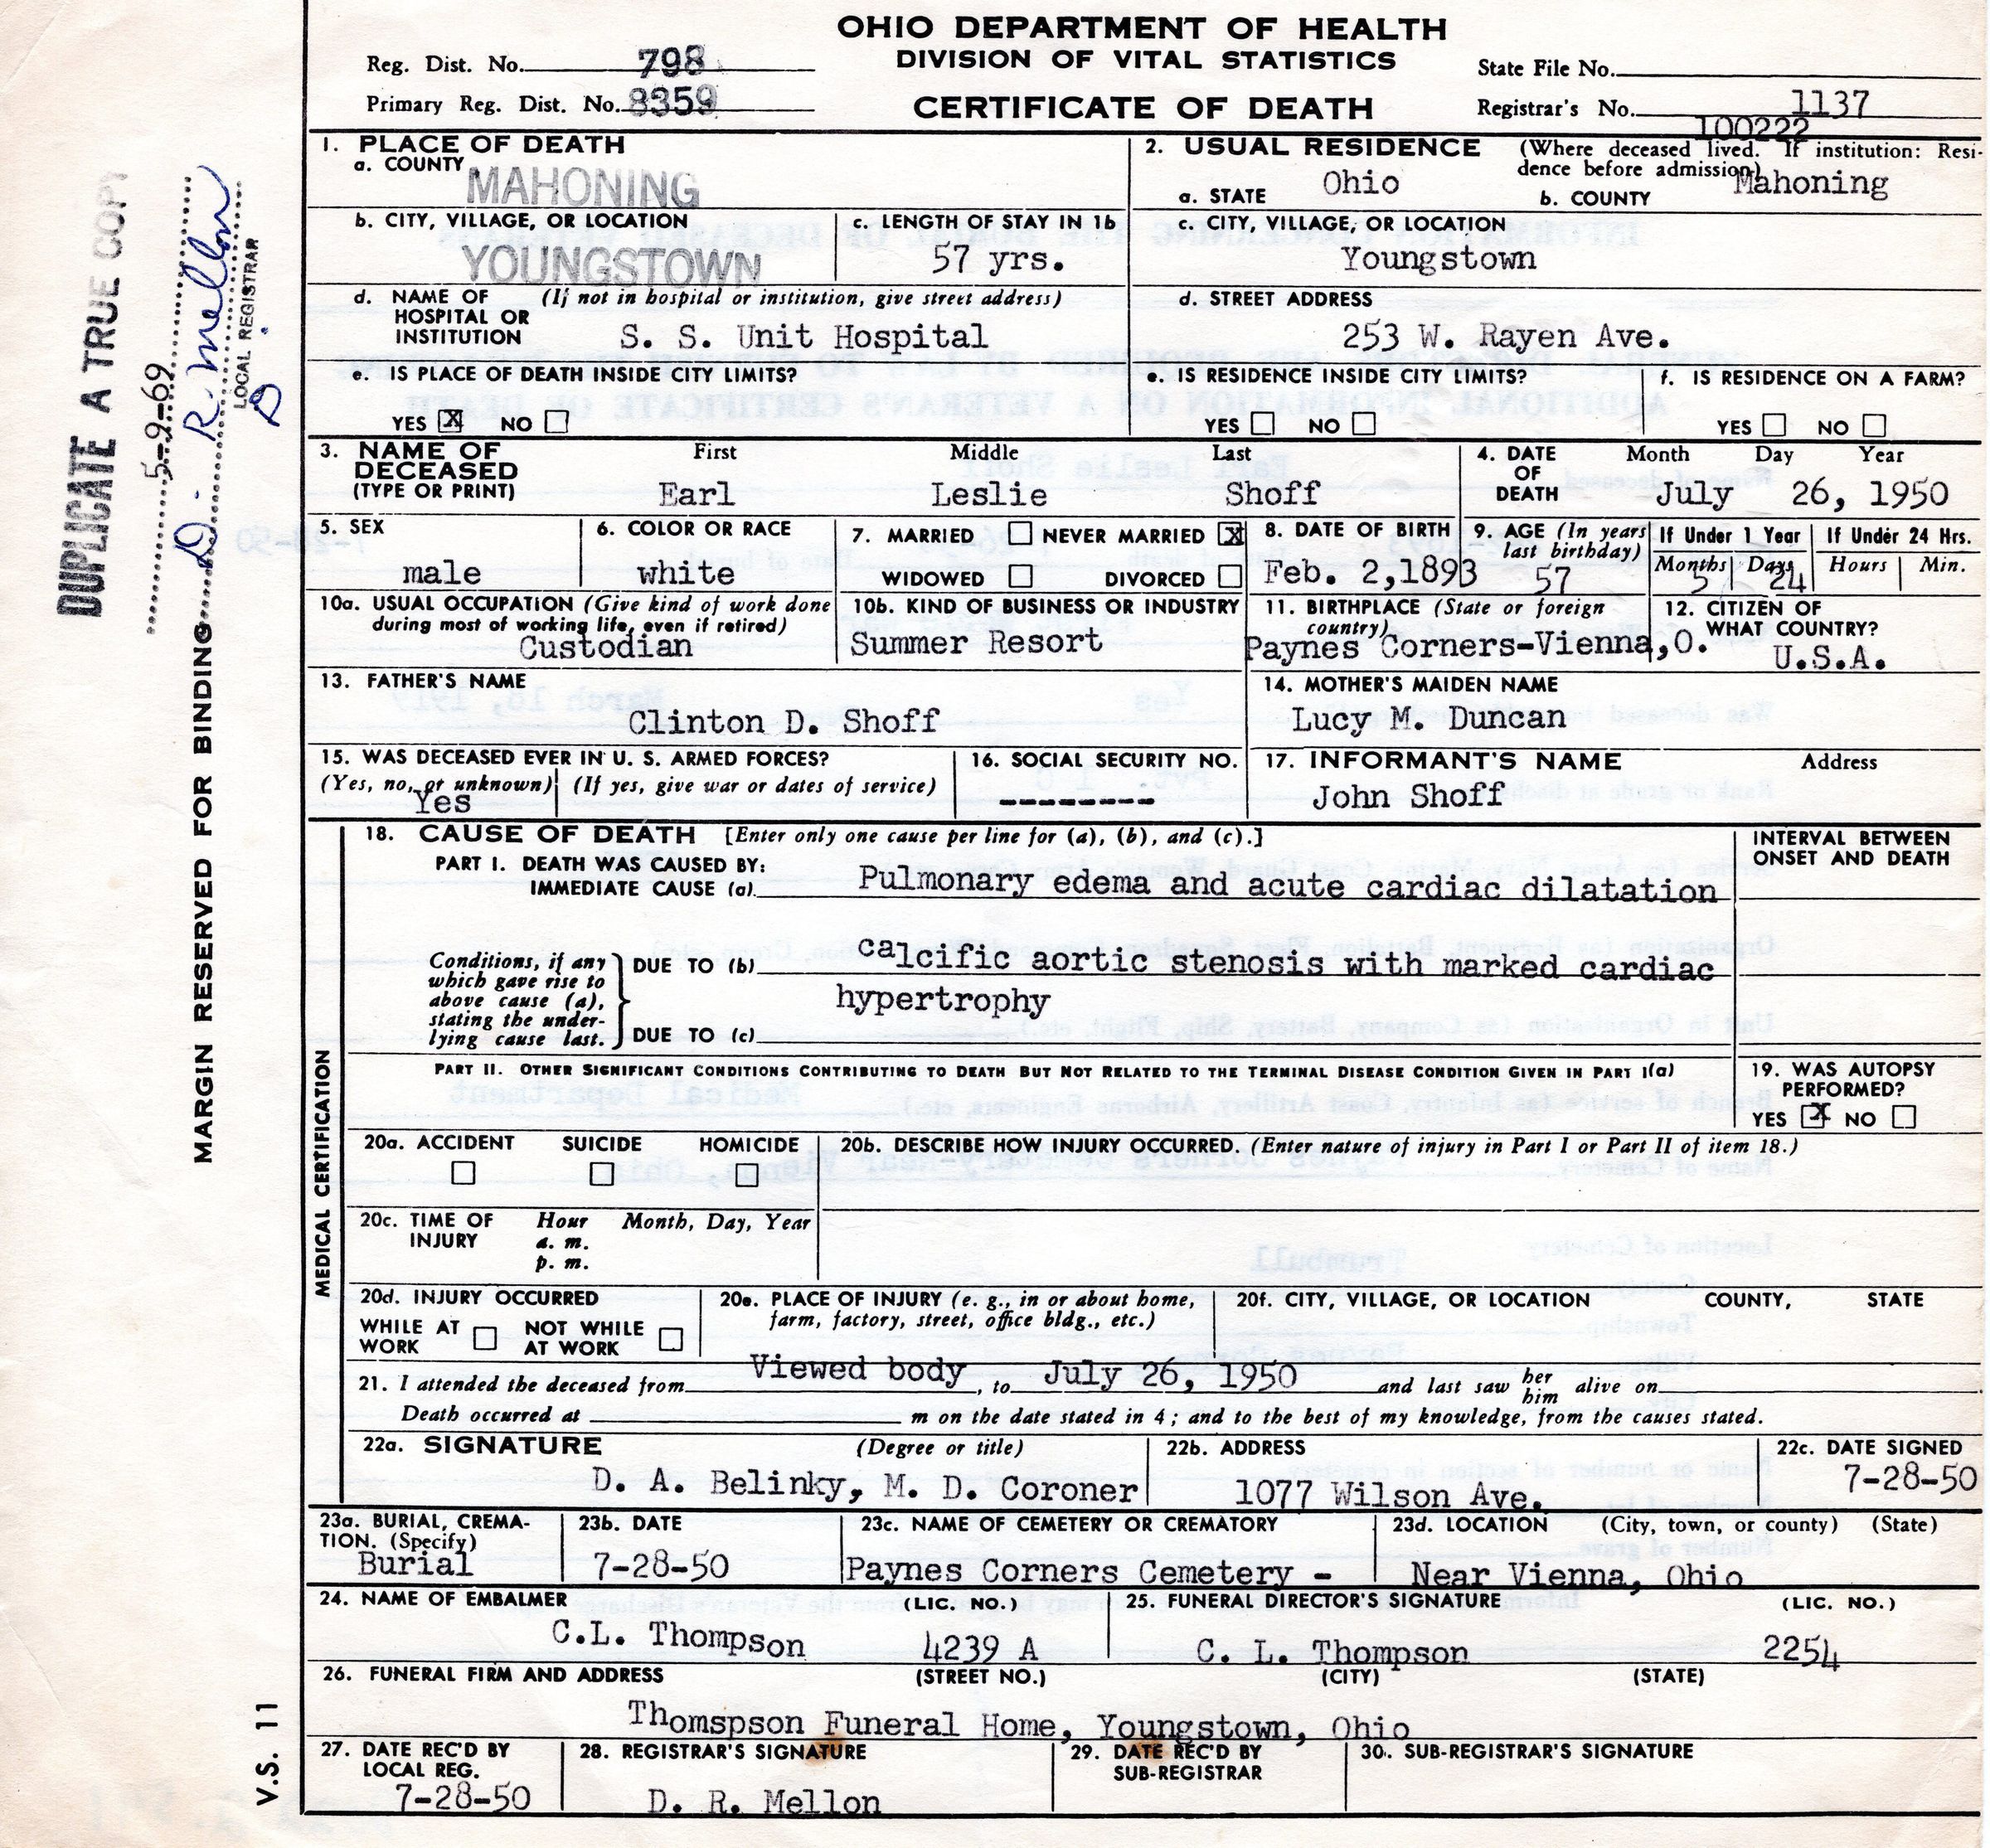 OHIO DEPARTMENT OF HEALTH
DIVISION OF VITAL STATISTICS
CERTIFICATE OF DEATH
Reg. Dist. No. 798
Primary Reg. Dist. No. 8359
State File No.
Registrar's No. 1137
100222
1. PLACE OF DEATH
a. COUNTY MAHONING
2. USUAL RESIDENCE (Where deceased lived. If institution: Resi-
dence before admission)
a. STATE Ohio b. COUNTY Mahoning
b. CITY, VILLAGE, OR LOCATION YOUNGSTOWN
c. LENGTH OF STAY IN 1b 57 yrs.
c. CITY, VILLAGE, OR LOCATION
Youngstown
d. NAME OF (If not in hospital or institution, give street address)
HOSPITAL OR
INSTITUTION S. S. Unit Hospital
d. STREET ADDRESS
253 W. Rayen Ave.
e. IS PLACE OF DEATH INSIDE CITY LIMITS?
YES X NO
e. IS RESIDENCE INSIDE CITY LIMITS?
YES NO
f. IS RESIDENCE ON A FARM?
YES NO
3. NAME OF
DECEASED
(TYPE OR PRINT)
First Middle Last
Earl Leslie Shoff
4. DATE
OF
DEATH
Month Day Year
July 26, 1950
5. SEX
male
6. COLOR OR RACE
white
7. MARRIED NEVER MARRIED X
WIDOWED DIVORCED
8. DATE OF BIRTH
Feb. 2,1893
9. AGE (In years
last birthday)
57
If Under 1 Year If Under 24 Hrs.
Months Days Hours Min.
5 24
10a. USUAL OCCUPATION (Give kind of work done
during most of working life, even if retired)
Custodian
10b. KIND OF BUSINESS OR INDUSTRY
Summer Resort
11. BIRTHPLACE (State or foreign
country)
Paynes Corners-Vienna,O.
12. CITIZEN OF
WHAT COUNTRY?
U.S.A.
13. FATHER'S NAME
Clinton D. Shoff
14. MOTHER'S MAIDEN NAME
Lucy M. Duncan
15. WAS DECEASED EVER IN U. S. ARMED FORCES?
(Yes, no, or unknown) (If yes, give war or dates of service)
Yes
16. SOCIAL SECURITY NO.
---------
17. INFORMANT'S NAME Address
John Shoff
MEDICAL CERTIFICATION
18. CAUSE OF DEATH [Enter only one cause per line for (a), (b), and (c).]
INTERVAL BETWEEN
ONSET AND DEATH
PART I. DEATH WAS CAUSED BY:
IMMEDIATE CAUSE (a) Pulmonary edema and acute cardiac dilatation
Conditions, if any
which gave rise to
above cause (a),
stating the under-
lying cause last.
DUE TO (b) calcific aortic stenosis with marked cardiac
hypertrophy
DUE TO (c)
PART II. OTHER SIGNIFICANT CONDITIONS CONTRIBUTING TO DEATH BUT NOT RELATED TO THE TERMINAL DISEASE CONDITION GIVEN IN PART I(a)
19. WAS AUTOPSY
PERFORMED?
YES X NO
20a. ACCIDENT SUICIDE HOMICIDE
20b. DESCRIBE HOW INJURY OCCURRED. (Enter nature of injury in Part I or Part II of item 18.)
20c. TIME OF
INJURY
Hour Month, Day, Year
a. m.
p. m.
20d. INJURY OCCURRED
WHILE AT
WORK
NOT WHILE
AT WORK
20e. PLACE OF INJURY (e. g., in or about home,
farm, factory, street, office bldg., etc.)
20f. CITY, VILLAGE, OR LOCATION COUNTY, STATE
21. I attended the deceased from Viewed body, to July 26, 1950 and last saw her him alive on
Death occurred at m on the date stated in 4; and to the best of my knowledge, from the causes stated.
22a. SIGNATURE (Degree or title)
D. A. Belinky, M. D. Coroner
22b. ADDRESS
1077 Wilson Ave.
22c. DATE SIGNED
7-28-50
23a. BURIAL, CREMA-
TION. (Specify)
Burial
23b. DATE
7-28-50
23c. NAME OF CEMETERY OR CREMATORY
Paynes Corners Cemetery -
23d. LOCATION (City, town, or county) (State)
Near Vienna, Ohio
24. NAME OF EMBALMER (LIC. NO.)
C.L. Thompson 4239 A
25. FUNERAL DIRECTOR'S SIGNATURE (LIC. NO.)
C. L. Thompson 2254
26. FUNERAL FIRM AND ADDRESS (STREET NO.) (CITY) (STATE)
Thomspson Funeral Home, Youngstown, Ohio
27. DATE REC'D BY
LOCAL REG.
7-28-50
28. REGISTRAR'S SIGNATURE
D. R. Mellon
29. DATE REC'D BY
SUB-REGISTRAR
30. SUB-REGISTRAR'S SIGNATURE
DUPLICATE A TRUE COPY
5-9-69
D. R. Mellon
LOCAL REGISTRAR
MARGIN RESERVED FOR BINDING
V.S. 11